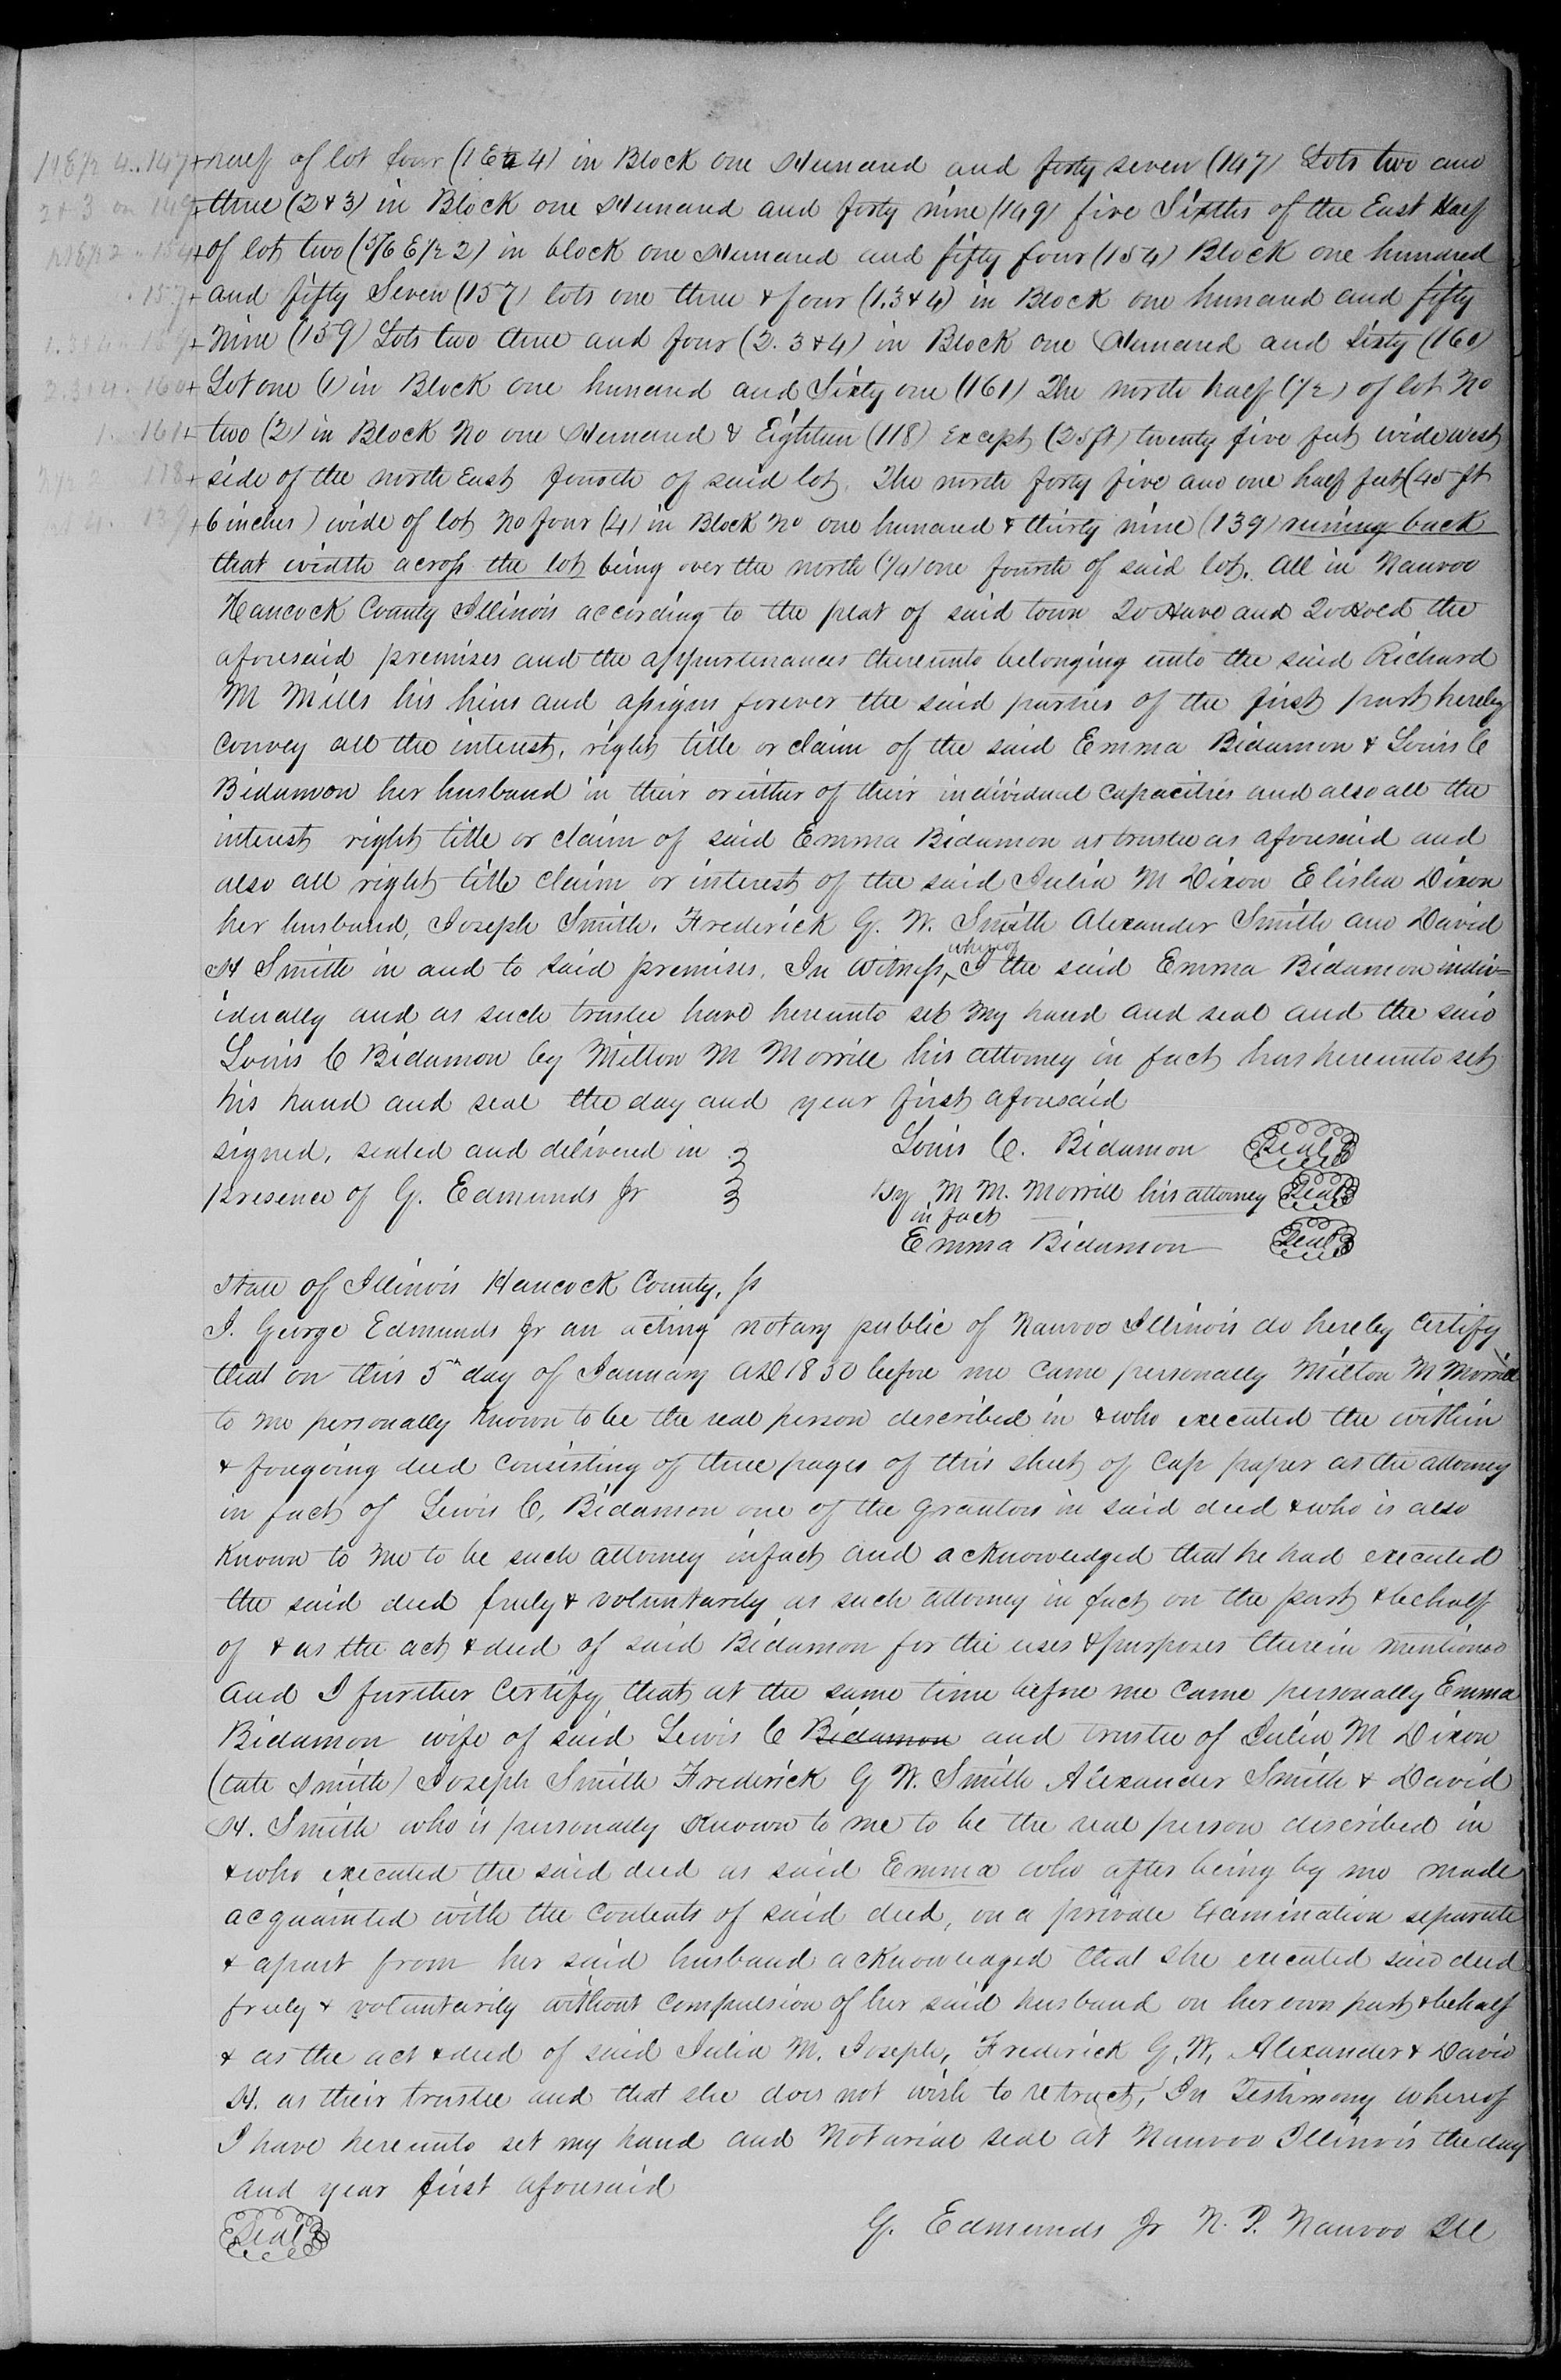 half of lot four (1 E½ 4) in Block one Hundred and forty seven (147) Lots two and
three (2 & 3) in Block one Hundred and forty nine (149) five Sixths of the East Half
of lot two (5/6 E ½ 2) in block one Hundred and fifty four (154) Block one hundred
and fifty Seven (157) lots one three & four (1.3 & 4) in Block one hundred and fifty
Nine (159) Lots two three and four (2. 3 & 4) in Block one Hundred and Sixty (160)
Lot one (1) in Block one hundred and Sixty one (161) The north half (½) of lot No
two (2) in Block No one Hundred & Eighteen (118) Except (25 ft) twenty five feet wide west
side of the north East fourth of said lot. The north forty five and one half feet (45 ft
6 inches) wide of lot No four (4) in Block No one hundred & thirty nine (139) runing back
that width across the lot being over the north (¼) one fourth of said lot. All in Nauvoo
Hancock County Illinois according to the plat of said town To Have and To Hold the
aforesaid premises and the appurtenances thereunto belonging unto the said Richard
M Mills his heirs and assigns forever the said parties of the first part hereby
convey all the interest, right title or claim of the said Emma Bidamon & Louis C
Bidamon her husband in their or either of their individual capacities and also all the
interest right title or claim of said Emma Bidamon as trustee as aforesaid and
also all right title claim or interest of the said Julia M Dixon Elisha Dixon
her husband, Joseph Smith, Frederick G. W. Smith Alexander Smith and David
H Smith in and to said premises. In Witness, whereof I the said Emma Bidamon indiv=
idually and as such trustee have hereunto set my hand and seal and the said
Louis C Bidamon by Milton M Morrill his attorney in fact has hereunto set
his hand and seal the day and year first aforesaid
signed, sealed and delivered in Louis C. Bidamon Seal
presence of G. Edmunds Jr By M M. Morrill his attorney Seal
in fact
Emma Bidamon Seal
State of Illinois Hancock County, ss
I. George Edmunds Jr an acting notary public of Nauvoo Illinois do hereby Certify
that on this 5th day of January AD 1850 before me came personally Milton M Morrill
to me personally known to be the real person described in & who executed the within
& foregoing deed consisting of three pages of this sheet of Cap paper as the attorney
in fact of Lewis C, Bidamon one of the grantors in said deed & who is also
known to me to be such attorney in fact and acknowledged that he had executed
the said deed freely & voluntarily as such attorney in fact on the part & behalf
of & as the act & deed of said Bidamon for the uses & purposes therein mentioned
and I further Certify that at the same time before me came personally Emma
Bidamon wife of said Lewis C Bidamon and trustee of Julia M Dixon
(late Smith) Joseph Smith Frederick G W. Smith Alexander Smith & David
H. Smith who is personally known to me to be the real person described in
& who executed the said deed as said Emma who after being by me made
acquainted with the contents of said deed, on a private Examination separate
& apart from her said husband acknowledged that she executed said deed
freely & voluntarily without compulsion of her said husband on her own part & behalf
& as the act & deed of said Julia M. Joseph, Frederick G. W, Alexander & David
H. as their trustee and that she does not wish to retract, In Testimony whereof
I have hereunto set my hand and Notarial seal at Nauvoo Illinois the day
and year first aforesaid
Seal G. Edmunds Jr N. P. Nauvoo Ill